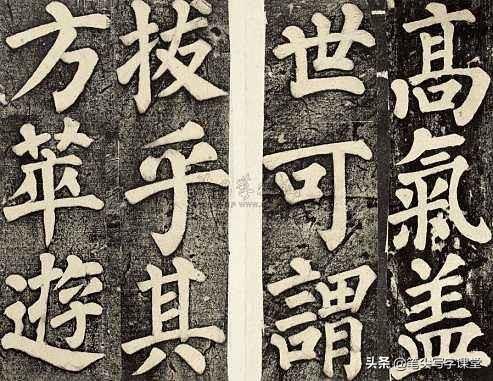 髙氣盖
世可謂
拔乎其
方萃遊
头条 @笔尖写字课堂